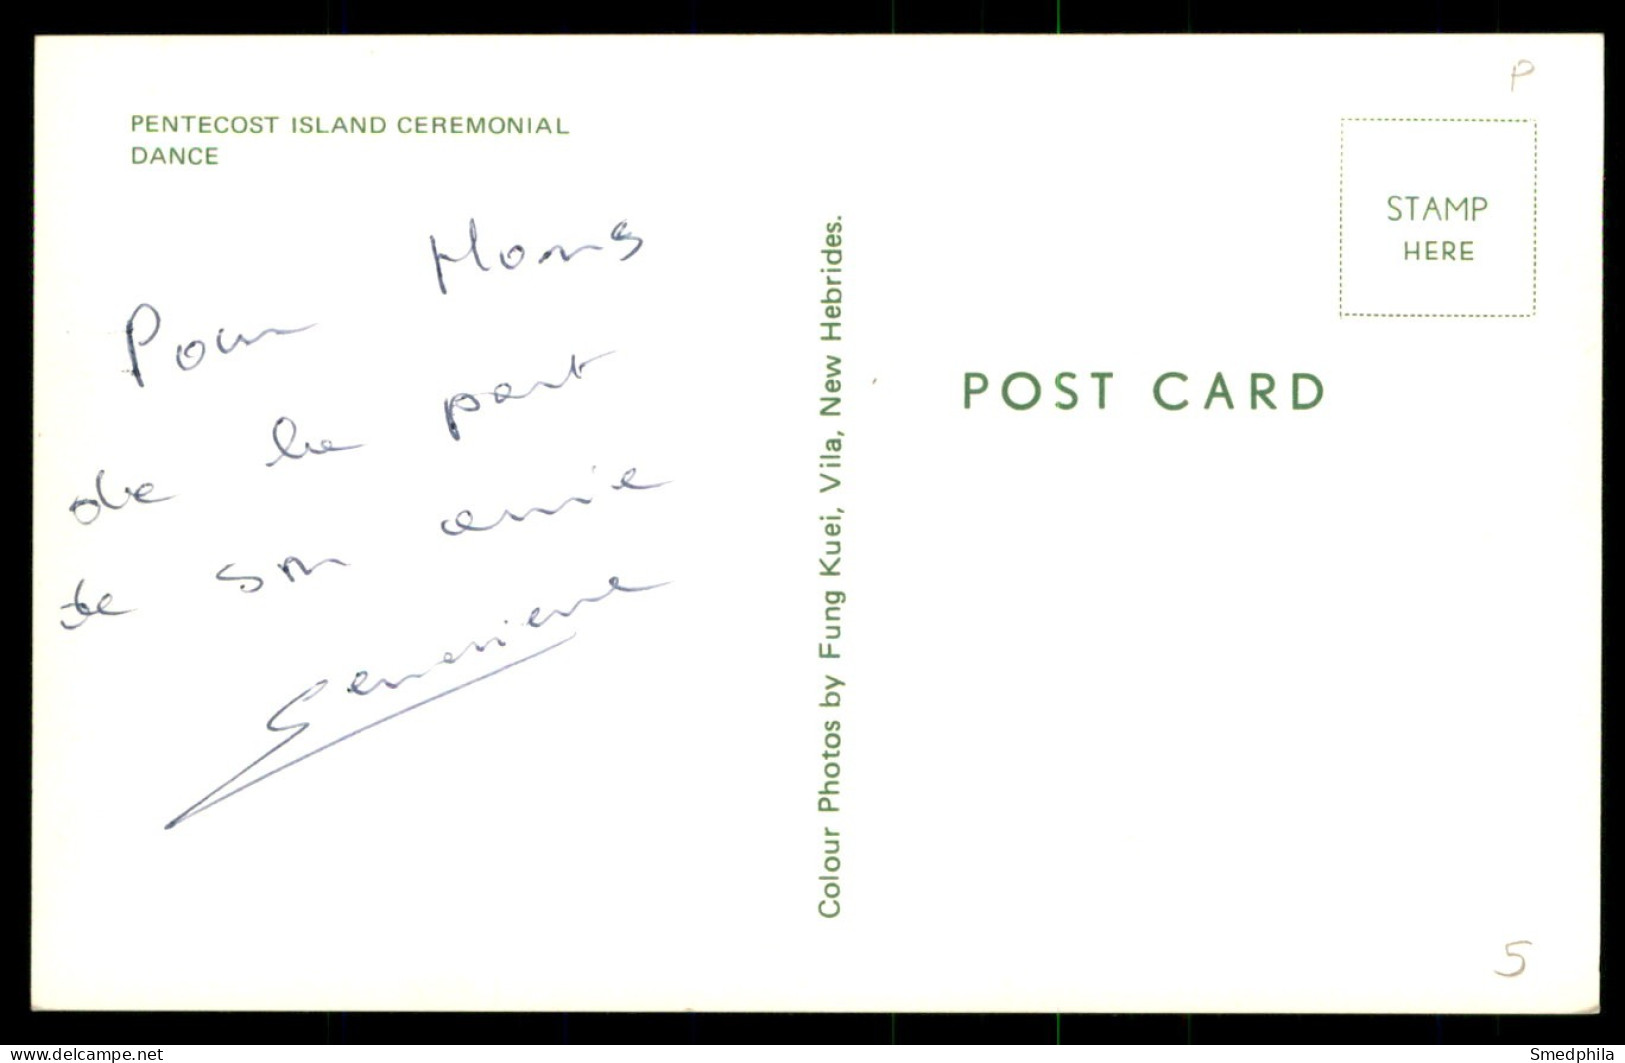 PENTECOST ISLAND CEREMONIAL
DANCE
Pour Hans
de la part
de son amie
Genevieve
Colour Photos by Fung Kuei, Vila, New Hebrides.
P
STAMP
HERE
POST CARD
5
Smedphila